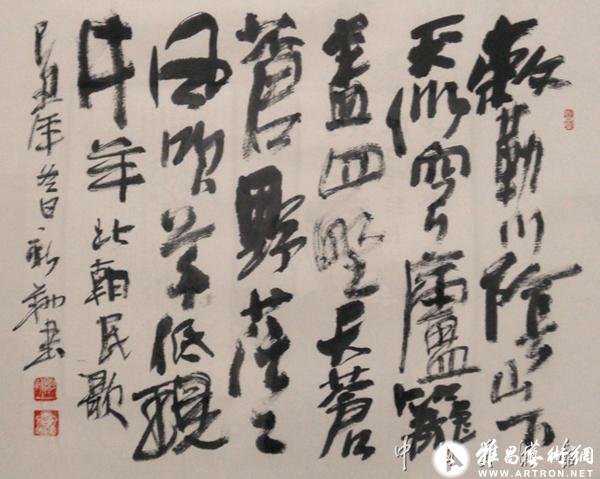 敕勒川陰山下
天似穹廬籠
蓋四野天蒼
蒼野茫〻
風吹草低現
牛羊 北朝民歌
己丑年春日 書
雅昌藝術網
WWW.ARTRON.NET